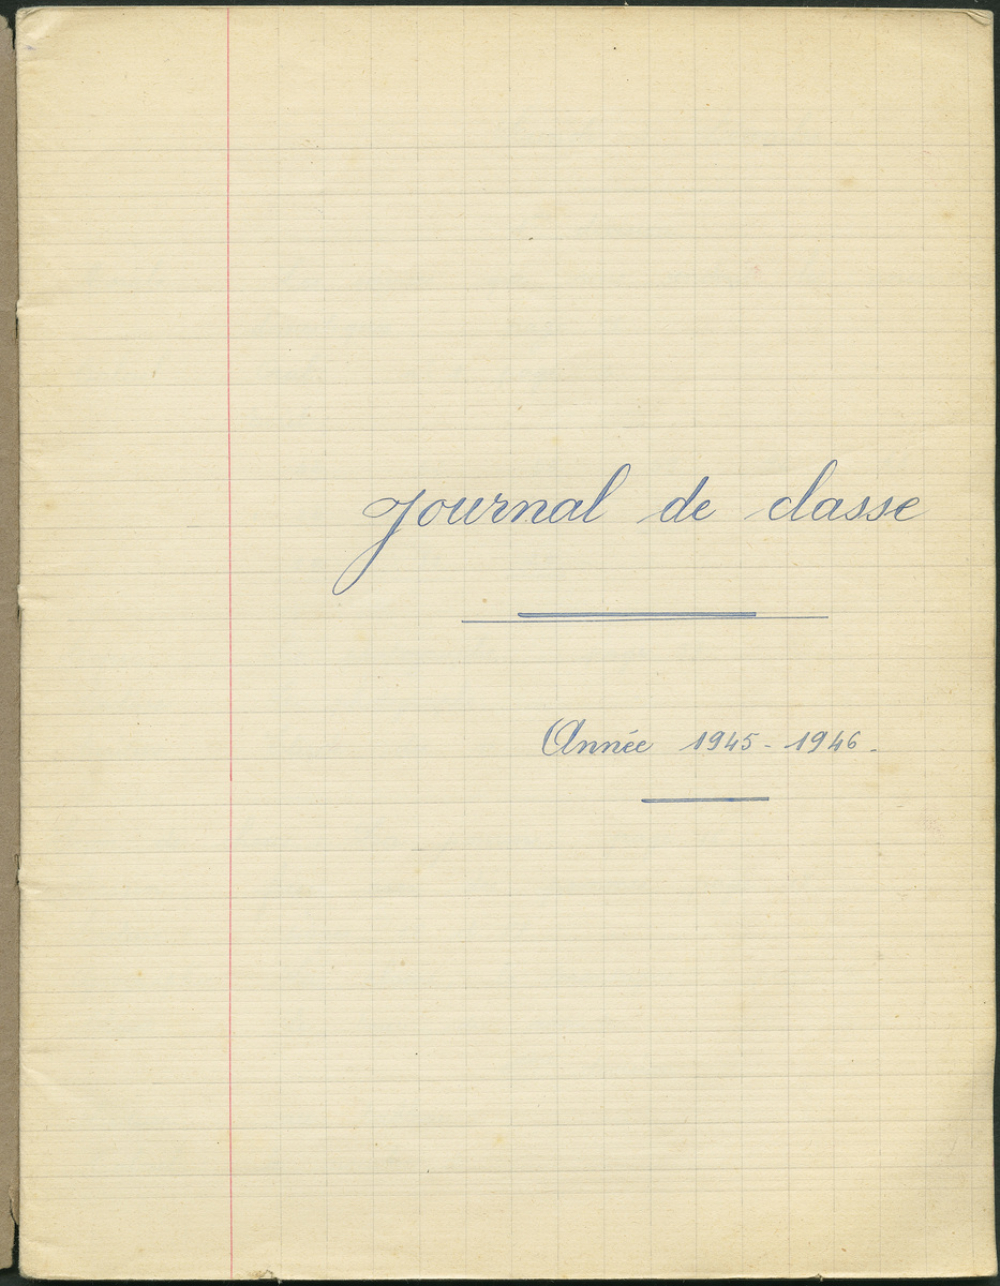 Journal de classe
Année 1945-1946.